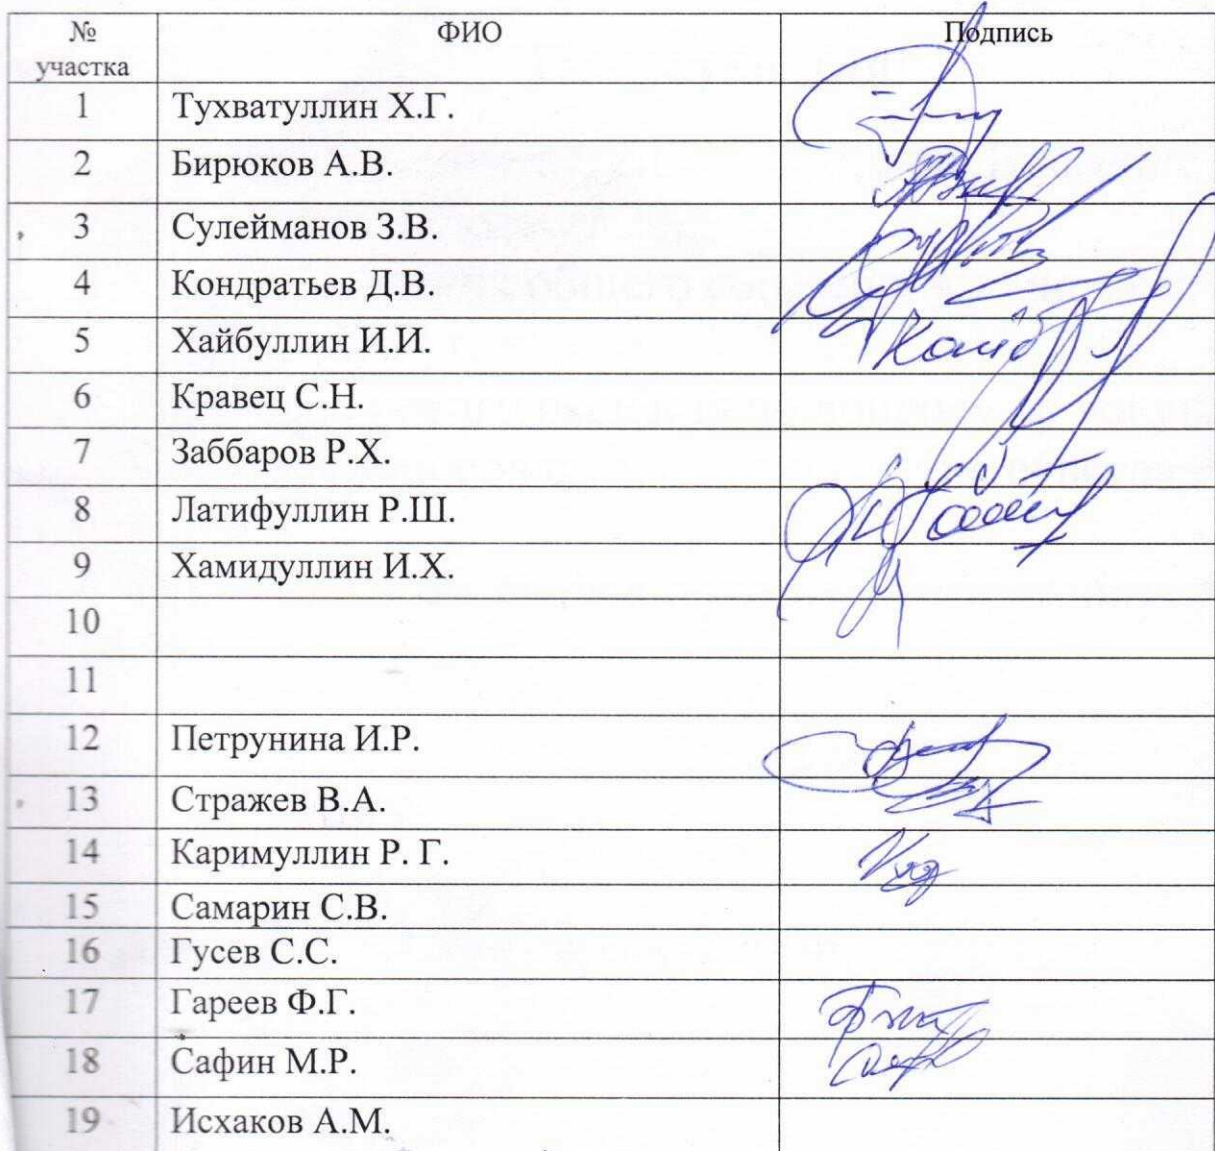 № участка ФИО Подпись
1 Тухватуллин Х.Г.
2 Бирюков А.В.
3 Сулейманов З.В.
4 Кондратьев Д.В.
5 Хайбуллин И.И.
6 Кравец С.Н.
7 Заббаров Р.Х.
8 Латифуллин Р.Ш.
9 Хамидуллин И.Х.
10
11
12 Петрунина И.Р.
13 Стражев В.А.
14 Каримуллин Р. Г.
15 Самарин С.В.
16 Гусев С.С.
17 Гареев Ф.Г.
18 Сафин М.Р.
19 Исхаков А.М.